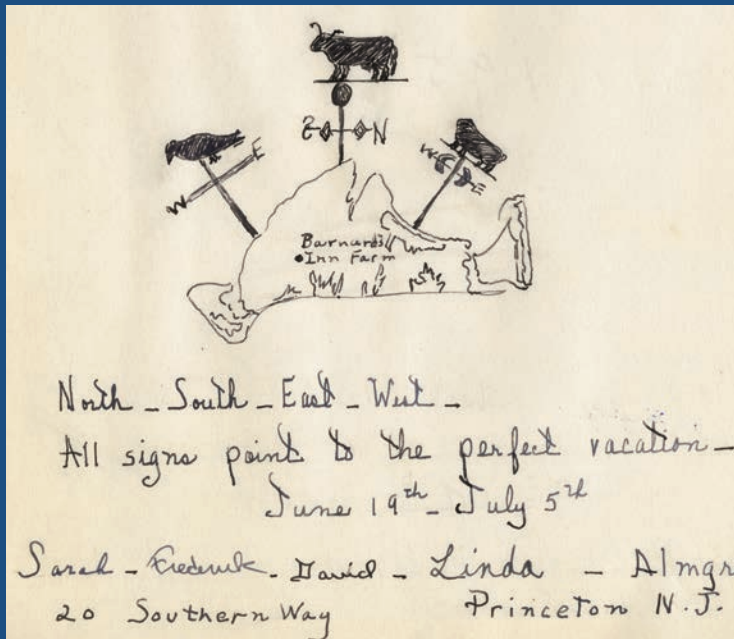 S N
W E
W E
Barnard's
Inn Farm
North - South - East - West -
All signs point to the perfect vacation -
June 19th - July 5th
Sarah - Frederick - David - Linda - Almgr
20 Southern Way Princeton N.J.